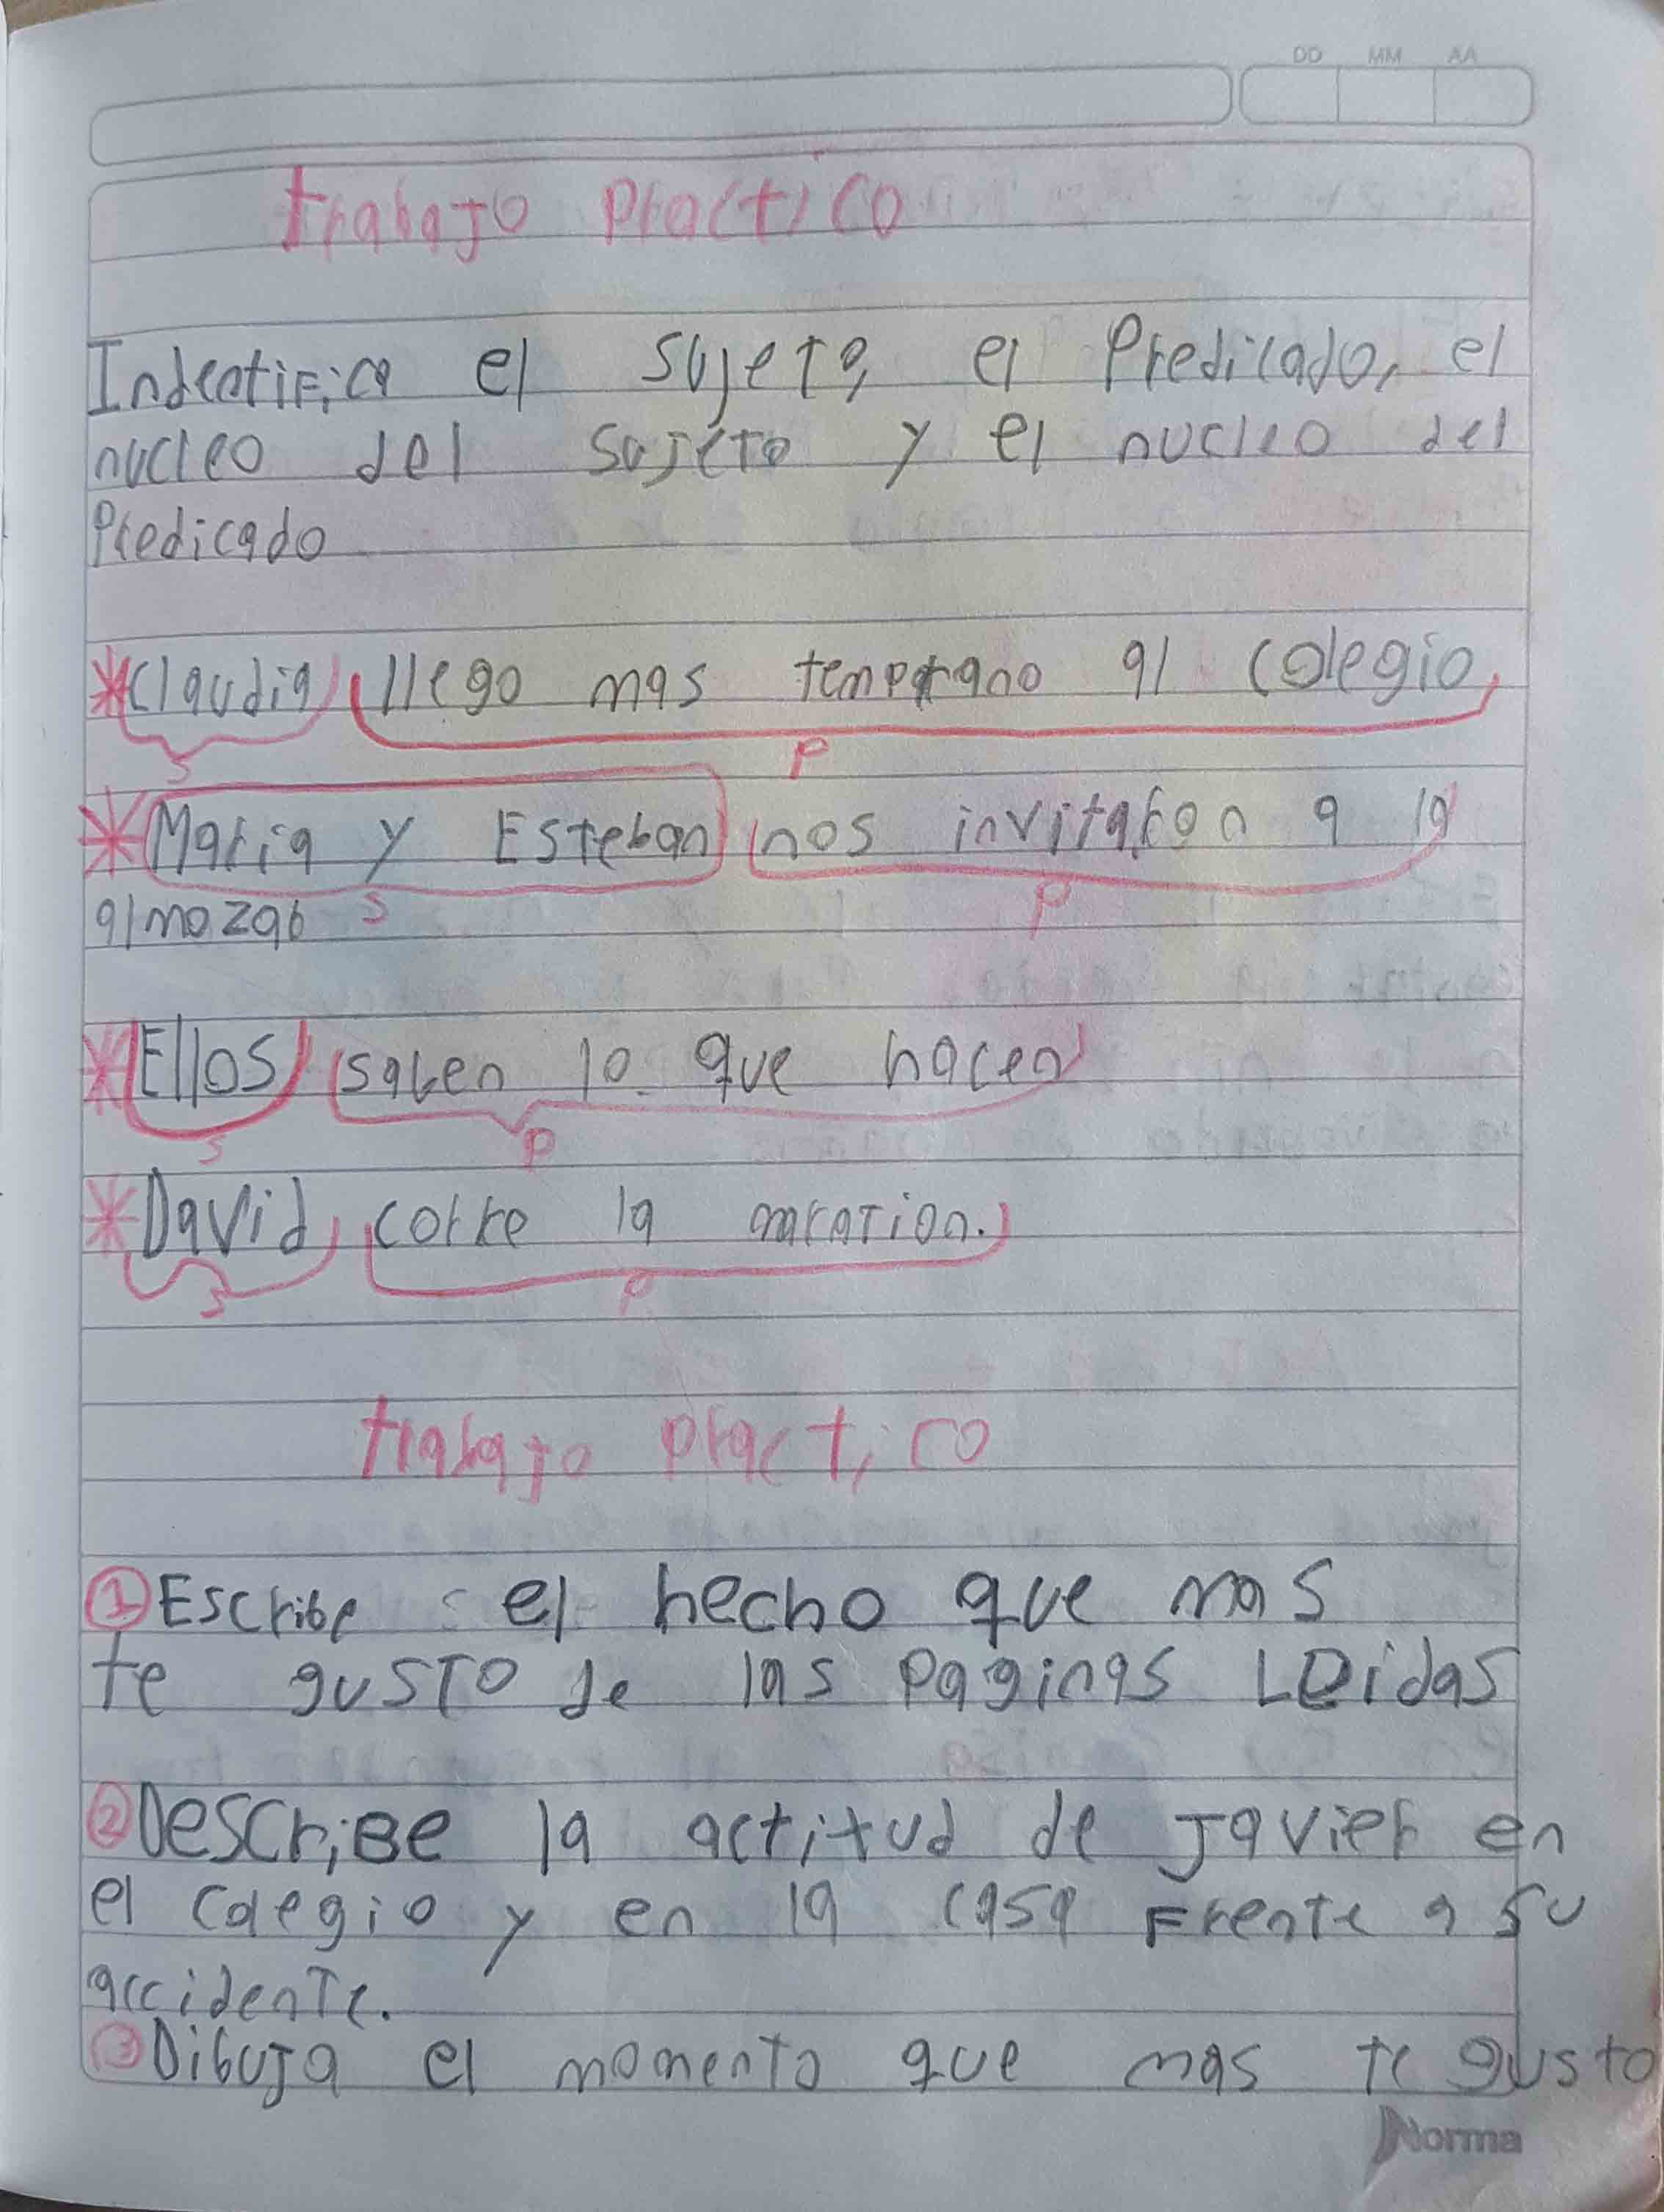 DD MM AA
trabajo practico
Indentifica el sujeto, el Predicado, el
nucleo del sujeto y el nucleo del
Predicado
*Claudia llego mas temprano al colegio
S P
*Maria y Esteban nos invitaron a la
almozar S P
*Ellos saben lo que hacen
S P
*David corre la maration.
S P
trabajo practico
1 Escribe el hecho que mas
te gusto de las paginas Leidas
2 Describe la actitud de Javier en
el colegio y en la casa Frente a su
accidente.
3 Dibuja el momento que mas te gusto
Norma